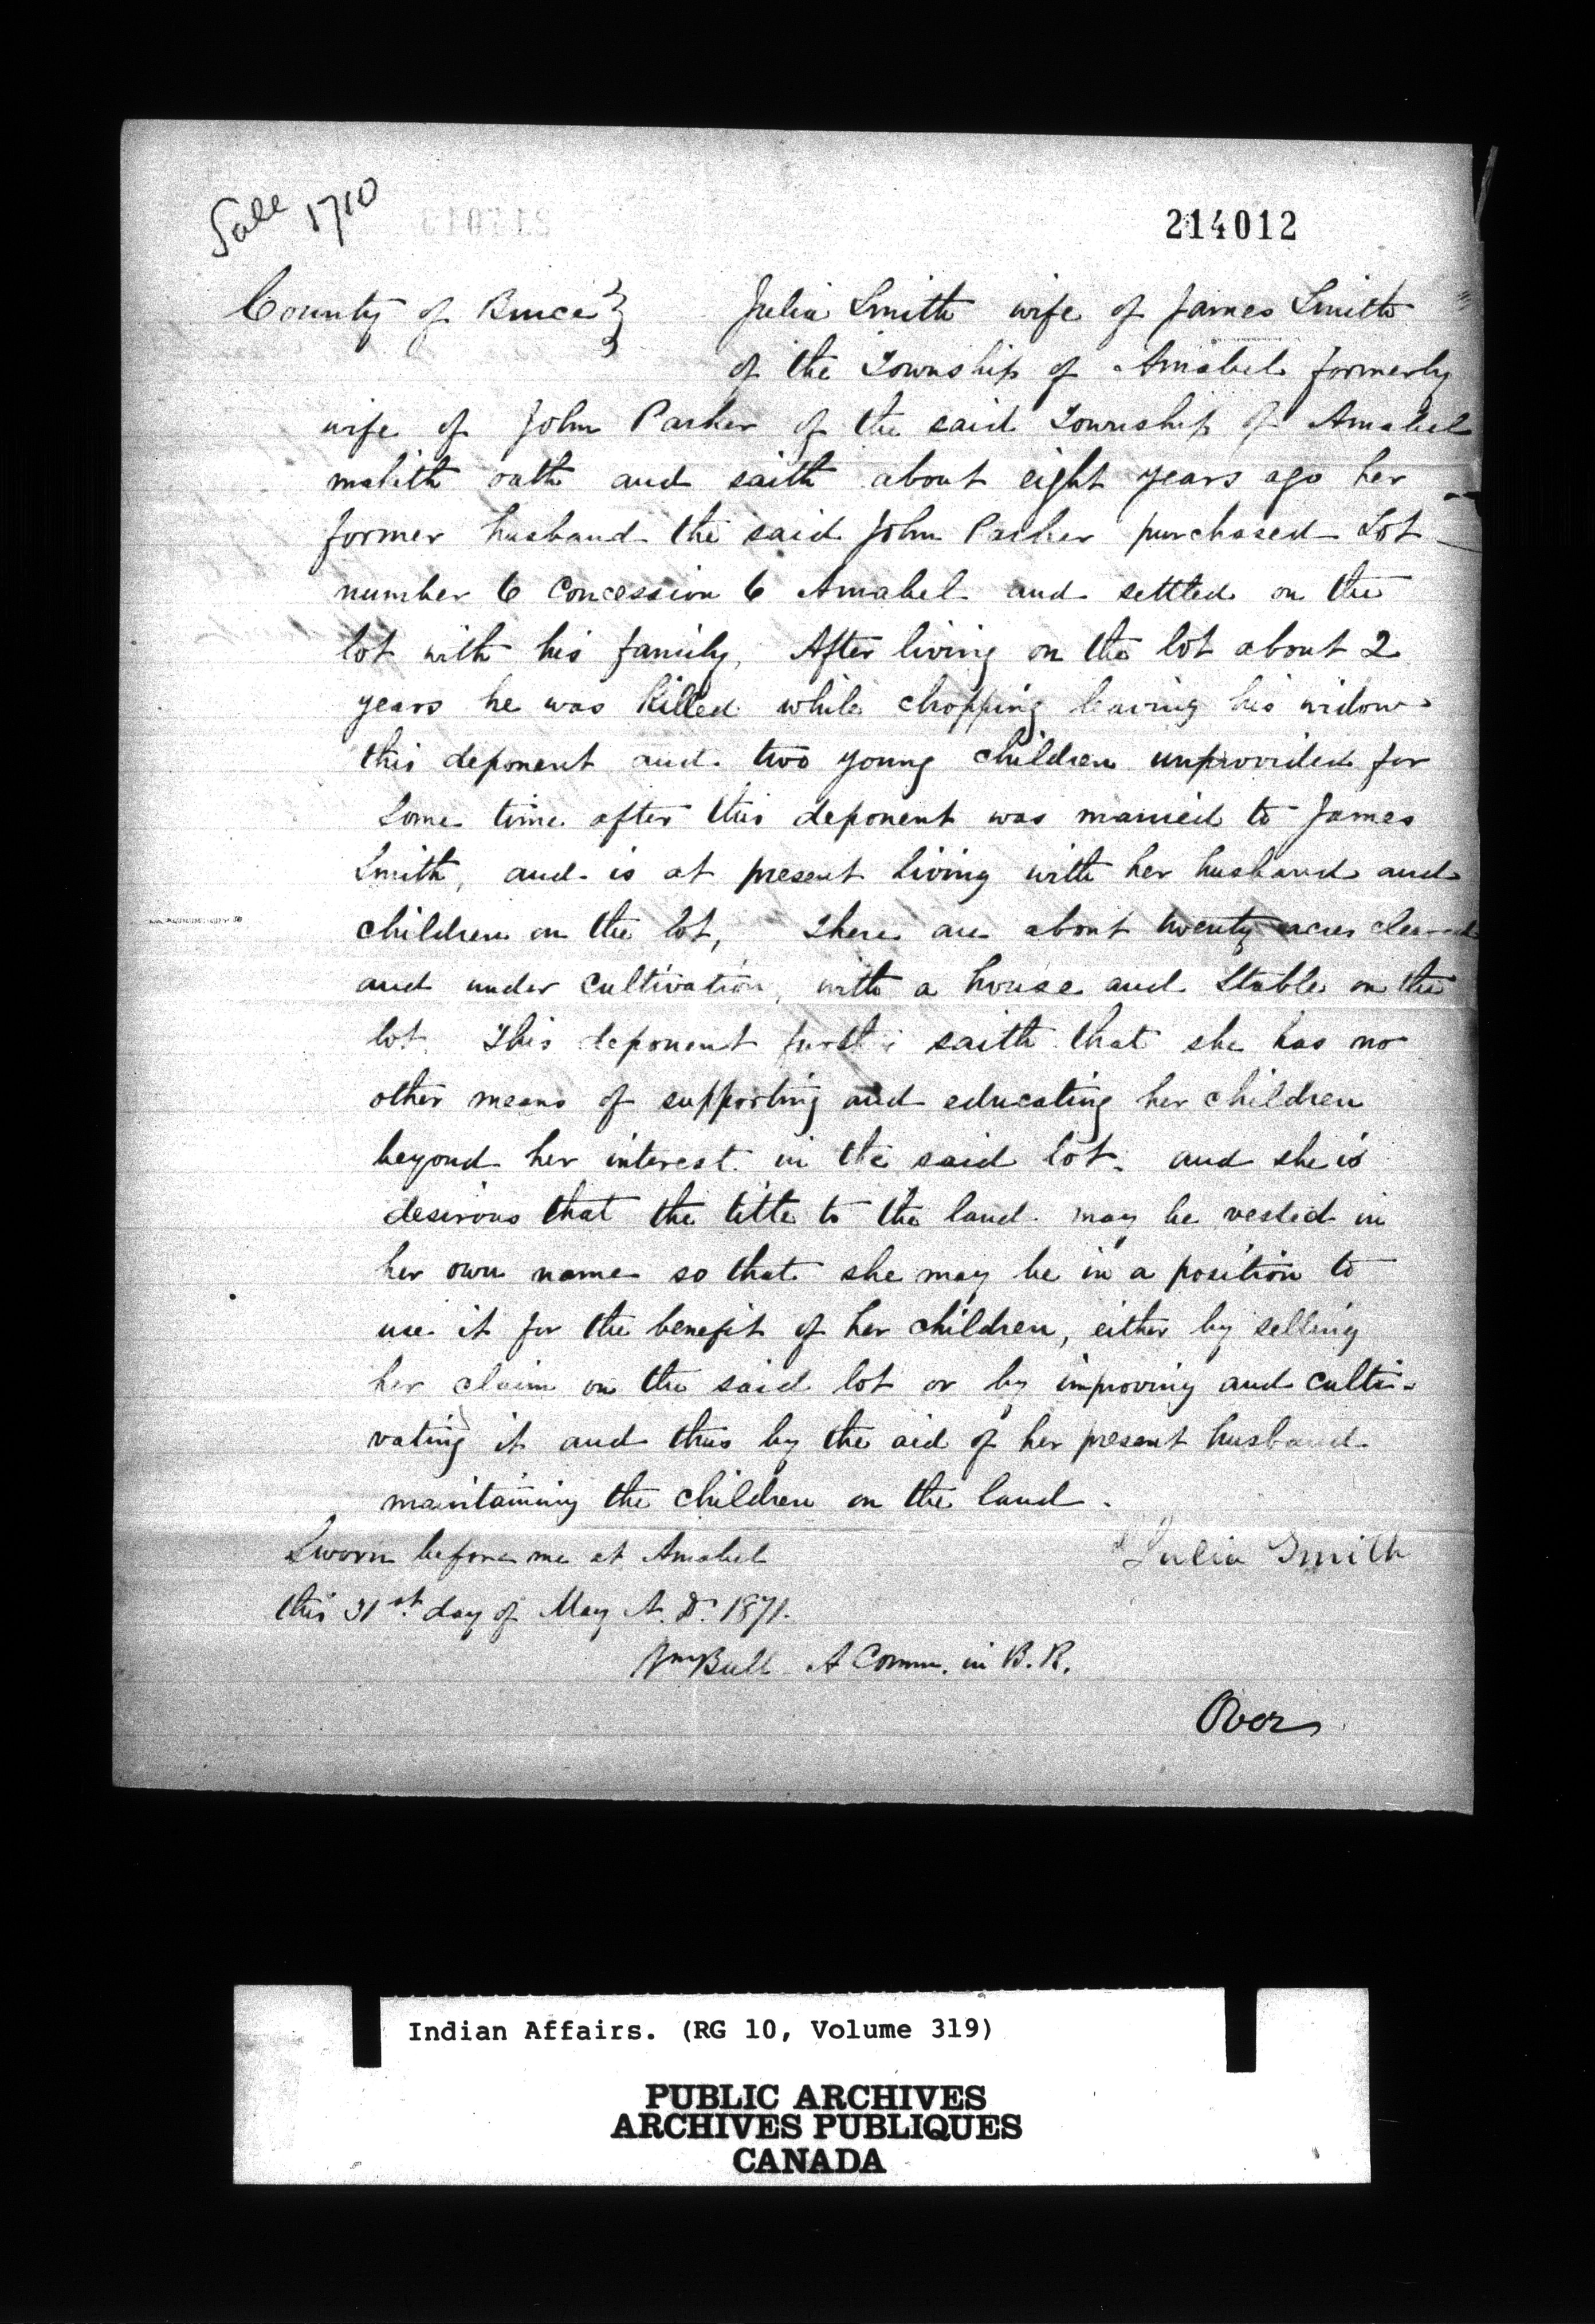 Sale 1710
214012
County of Bruce } Julia Smith wife of James Smith
of the Township of Amabel formerly
wife of John Parker of the said Township of Amabel
maketh oath and saith about eight years ago her
former husband the said John Parker purchased Lot
number 6 Concession 6 Amabel and settled on the
lot with his family. After living on the lot about 2
years he was killed while chopping leaving his widow
this deponent and two young children unprovided for
Some time after this deponent was married to James
Smith, and is at present living with her husband and
children on the lot, There are about twenty acres cleared
and under cultivation, with a house and stable on the
lot. This deponent further saith that she has no
other means of supporting and educating her children
beyond her interest in the said lot. and she is
desirous that the title to the land may be vested in
her own name so that she may be in a position to
use it for the benefit of her children, either by selling
her claim on the said lot or by improving and culti-
vating it and thus by the aid of her present husband
maintaining the children on the land.
Sworn before me at Amabel
Julia Smith
this 31st day of May A.D. 1871.
Wm Bull A Comm. in B.R.
Over
Indian Affairs. (RG 10, Volume 319)
PUBLIC ARCHIVES
ARCHIVES PUBLIQUES
CANADA